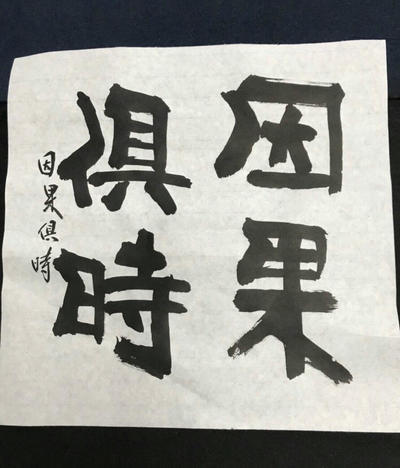 因果
俱時
因果俱時